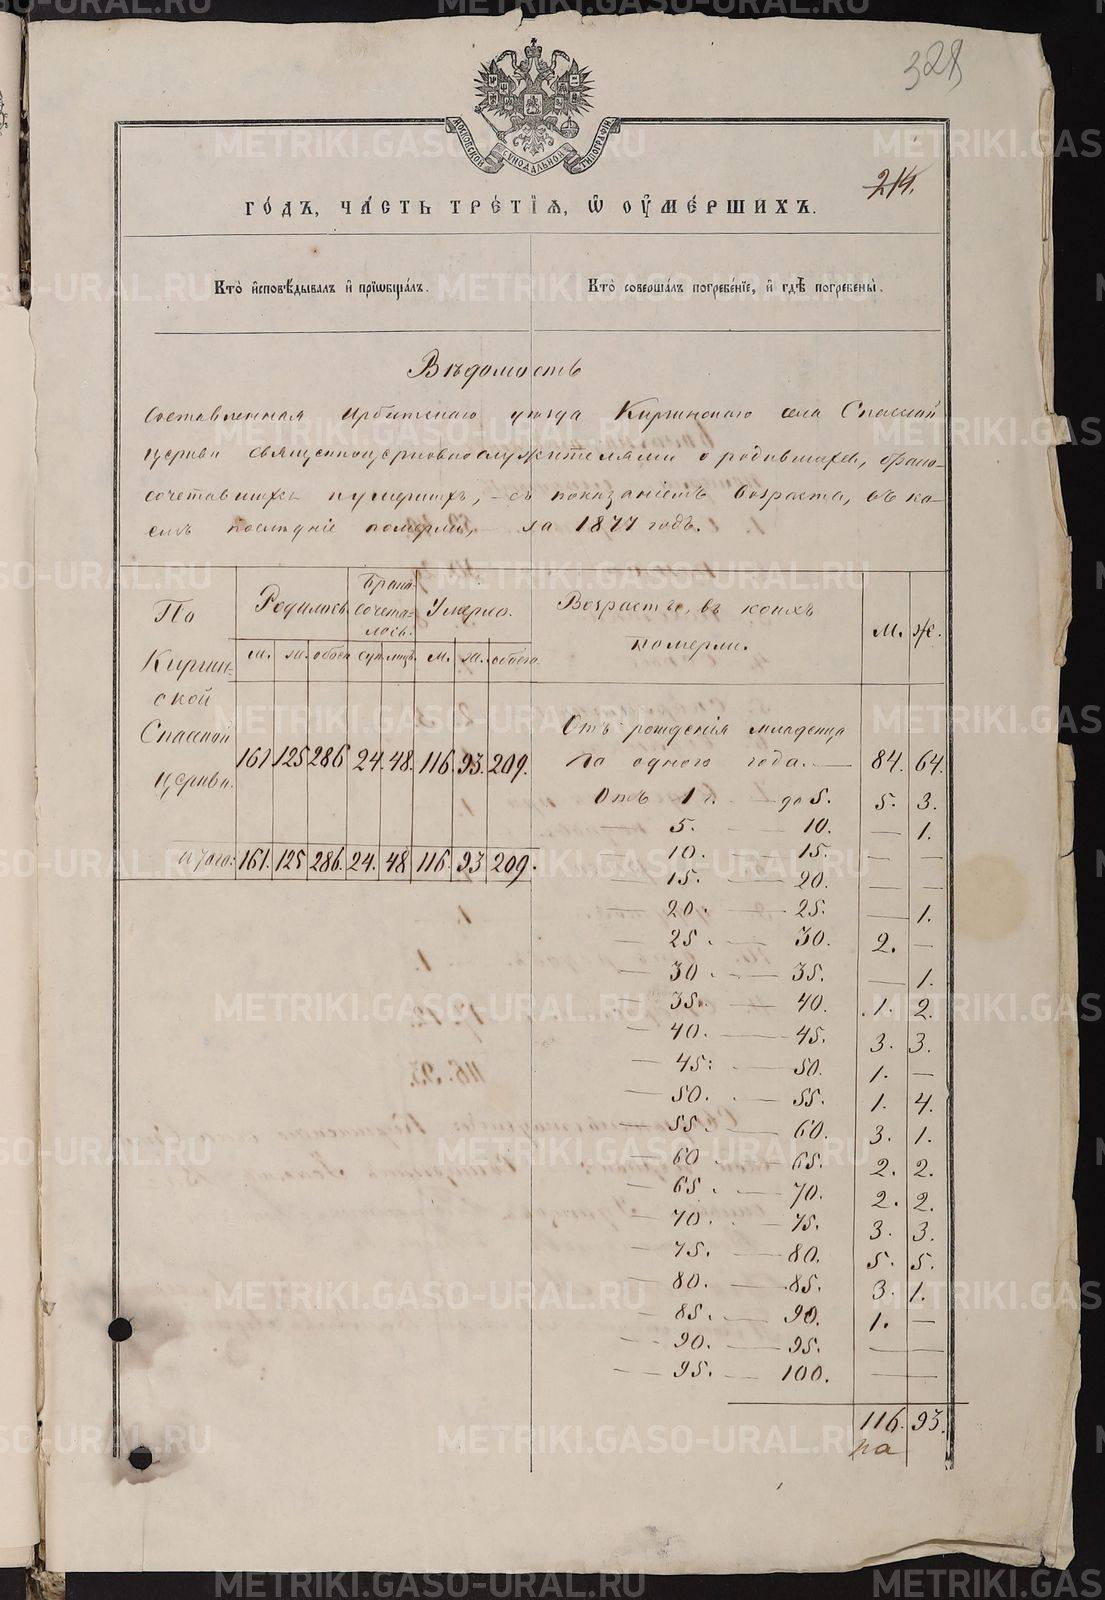 328
МОСКОВСКОЙ СѴНОДАЛЬНОЙ ТИПОГРАФІИ
214.
ГО́ДЪ, ЧА́СТЬ ТРЕ́ТІѦ, Ѽ ОУ҆МЕ́РШИХЪ.
Кто̀ и҆сповѣ́дывалъ и҆ прїѡбща́лъ.
Кто̀ соверша́лъ погребе́нїе, и҆ гдѣ̀ погребены̀.
Вѣдомость
составленная Ирбитскаго уѣзда Киргинскаго села Спасской
церкви священноцерковнослужителями о родившихся, брако-
сочетавшихся и умершихъ, – съ показаніемъ возраста, въ ка-
емъ послѣдніе померли, за 1877 годъ.
По Киргин-
ской
Спасской
церкви.
Родилось
Брако-
сочета-
лось.
Умерло.
м. ж. обоего суп. лицъ. м. ж. обоего.
161. 125 286 24. 48. 116. 93. 209.
Итого: 161. 125 286. 24. 48 116. 93 209.
Возрастъ, въ коихъ
померли.
м. ж.
Отъ рожденія младенца
до одного года. — 84. 64.
Отъ 1 г. — до 5. 5. 3.
— 5. — 10. — 1.
— 10. — 15. — —
— 15. — 20. — —
— 20. — 25. — 1.
— 25. — 30. 2. —
— 30. — 35. — 1.
— 35. — 40. 1. 2.
— 40. — 45. 3. 3.
— 45. — 50. 1. —
— 50. — 55. 1. 4.
— 55. — 60. 3. 1.
— 60 — 65. 2. 2.
— 65. — 70. 2. 2.
— 70. — 75. 3. 3.
— 75. — 80. 5. 5.
— 80. — 85. 3. 1.
— 85. — 90. 1. —
— 90. — 95. — —
— 95. — 100. — —
116. 93.
на
METRIKI.GASO-URAL.RU